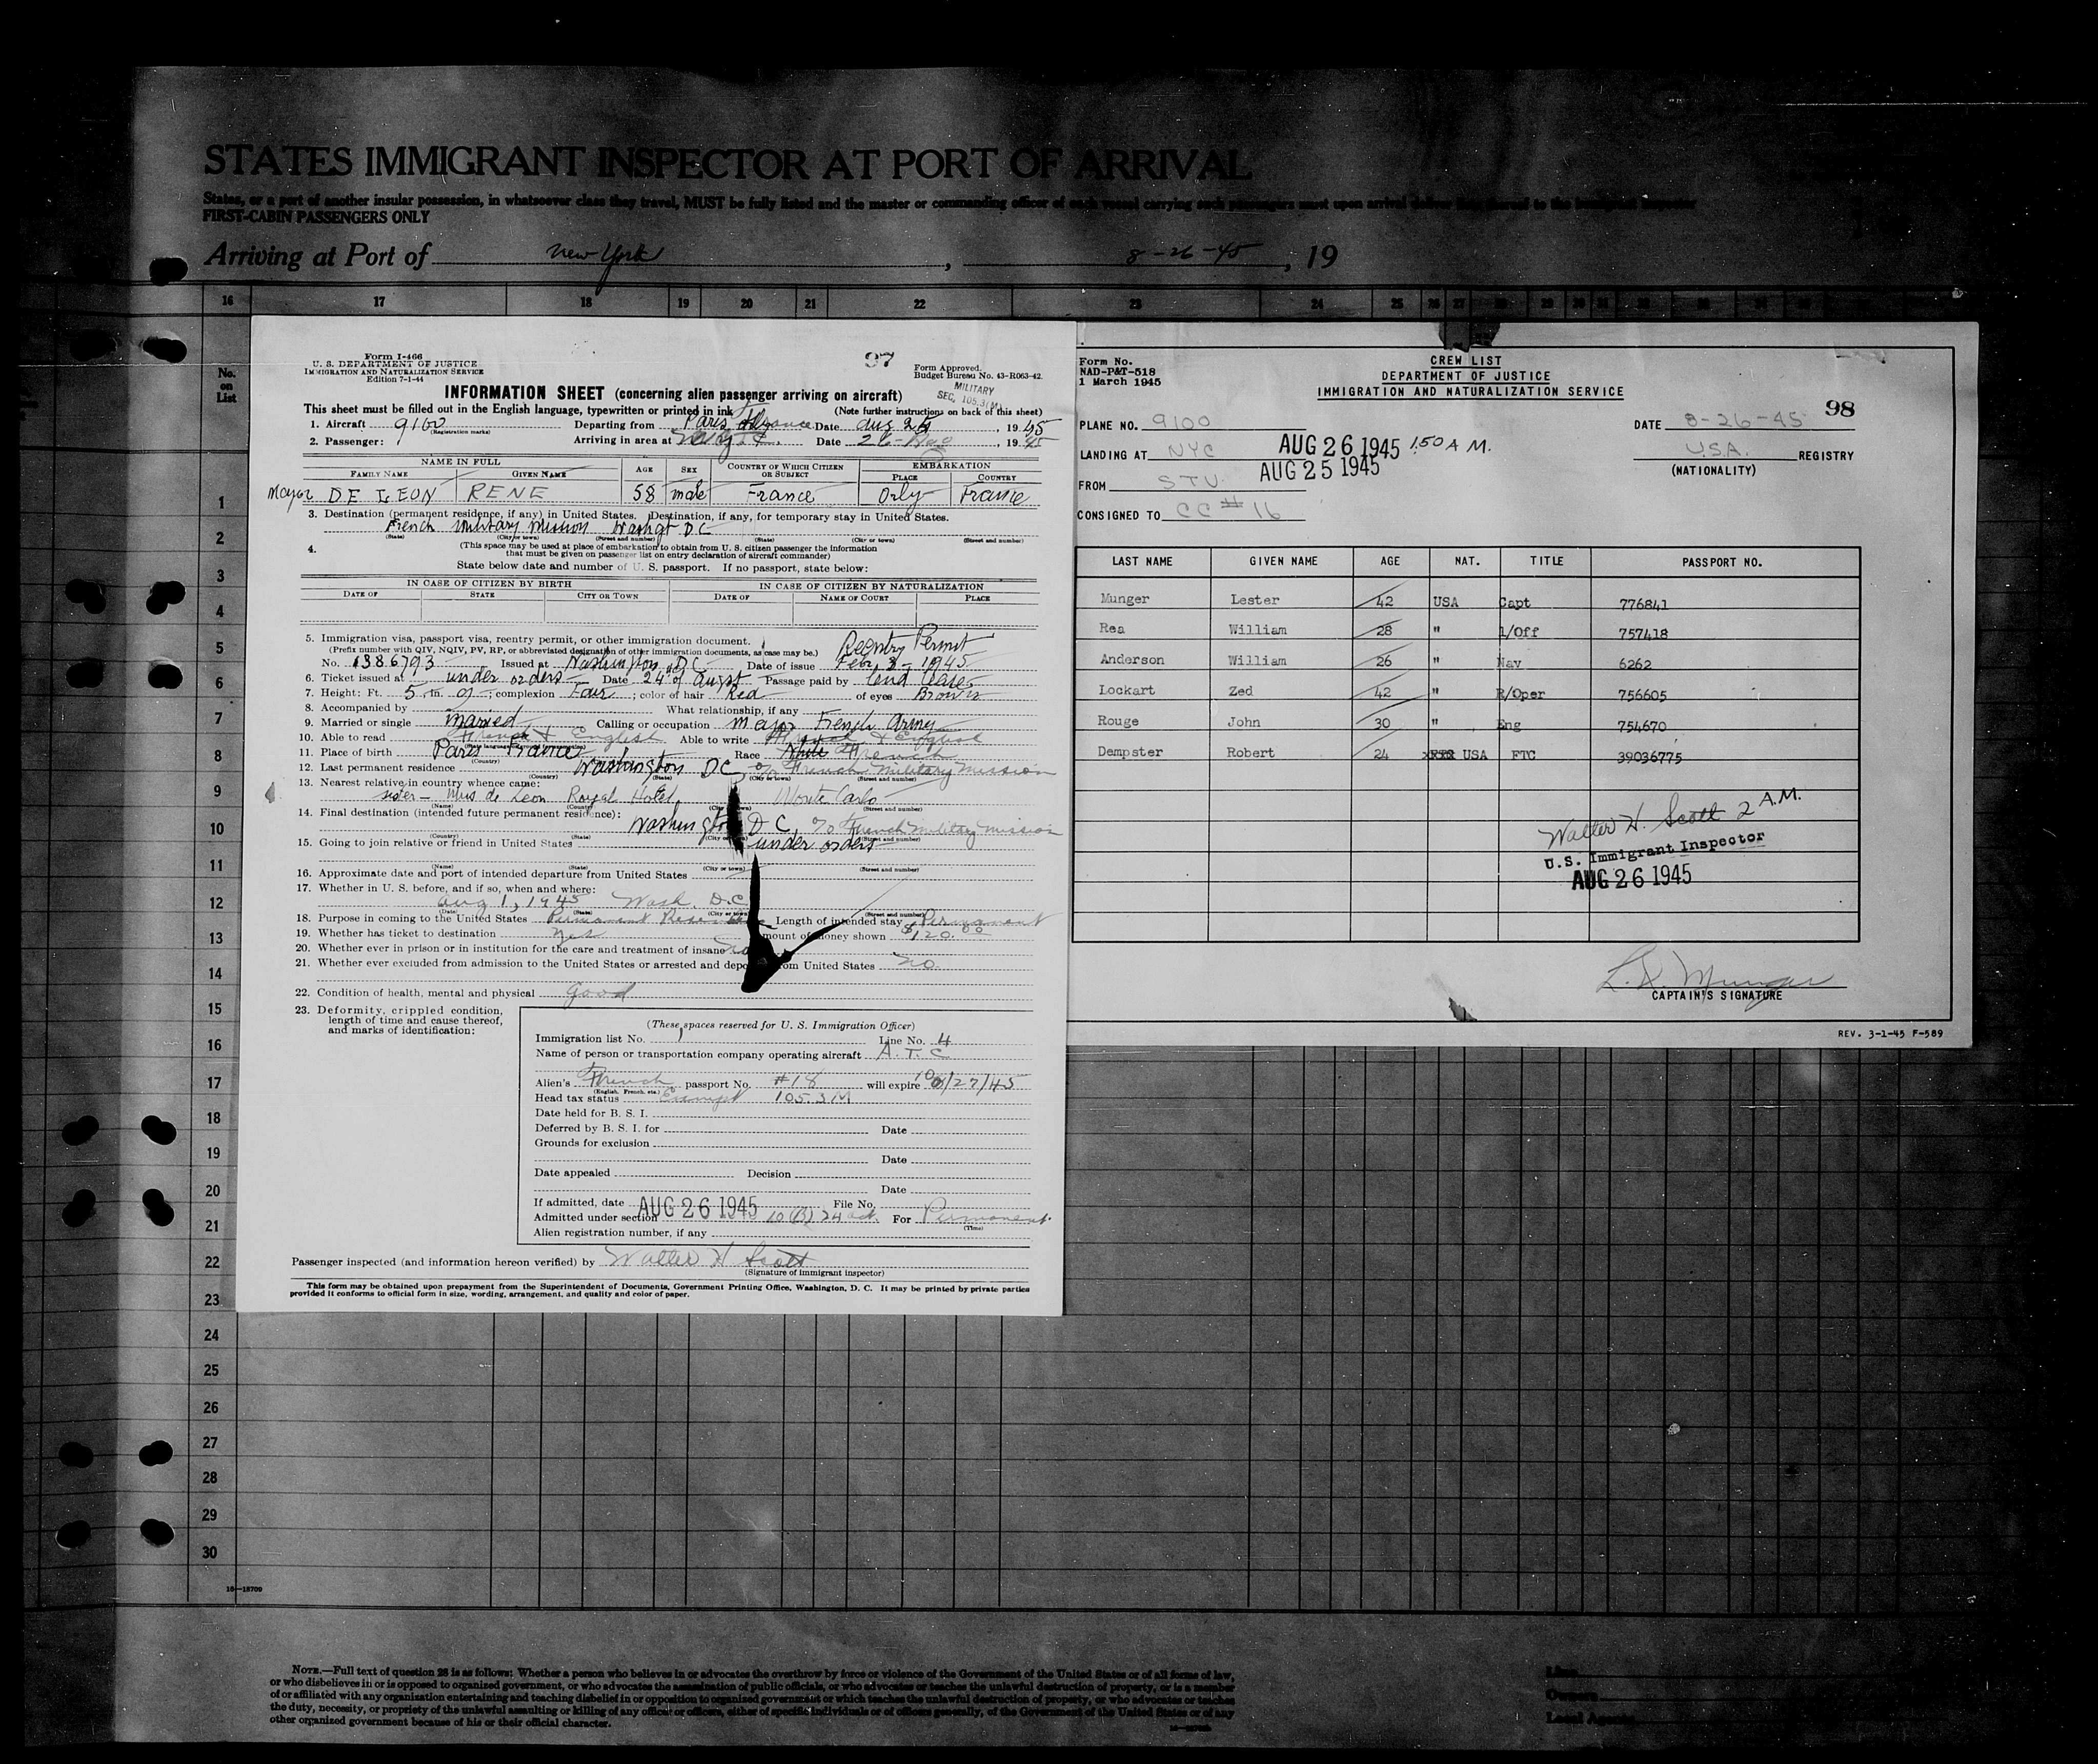 STATES IMMIGRANT INSPECTOR AT PORT OF ARRIVAL
States, or a port of another insular possession, in whatsoever class they travel, MUST be fully listed and the master or commanding officer of each vessel carrying such passengers must upon arrival deliver lists thereof to the immigrant inspector
FIRST-CABIN PASSENGERS ONLY
Arriving at Port of New York, 8-26-45, 19
16 17 18 19 20 21 22 23 24 25 26 27 28 29 30 31 32
No. on List
1
2
3
4
5
6
7
8
9
10
11
12
13
14
15
16
17
18
19
20
21
22
23
24
25
26
27
28
29
30
16—18709
Form I-466
U. S. DEPARTMENT OF JUSTICE
IMMIGRATION AND NATURALIZATION SERVICE
Edition 7-1-44
97
Form Approved.
Budget Bureau No. 43-R063-42.
MILITARY
SEC. 105.3(M)
INFORMATION SHEET (concerning alien passenger arriving on aircraft)
This sheet must be filled out in the English language, typewritten or printed in ink
(Note further instructions on back of this sheet)
1. Aircraft 9100 Departing from Paris France Date Aug 25, 1945
(Registration marks)
2. Passenger: Arriving in area at Date 26-Aug, 1945
NAME IN FULL AGE SEX COUNTRY OF WHICH CITIZEN OR SUBJECT EMBARKATION
FAMILY NAME GIVEN NAME PLACE COUNTRY
Major DE LEON RENE 58 male France Orly France
3. Destination (permanent residence, if any) in United States. Destination, if any, for temporary stay in United States.
French Military Mission Washgt DC
(State) (City or town) (Street and number) (State) (City or town) (Street and number)
4. (This space may be used at place of embarkation to obtain from U. S. citizen passenger the information
that must be given on passenger list on entry declaration of aircraft commander)
State below date and number of U. S. passport. If no passport, state below:
IN CASE OF CITIZEN BY BIRTH IN CASE OF CITIZEN BY NATURALIZATION
DATE OF STATE CITY OR TOWN DATE OF NAME OF COURT PLACE
5. Immigration visa, passport visa, reentry permit, or other immigration document. Reentry Permit
(Prefix number with QIV, NQIV, PV, RP, or abbreviated designation of other immigration documents, as case may be.)
No. 1386793 Issued at Washington, DC Date of issue Febr 3 - 1945
6. Ticket issued at under orders Date 24 of August Passage paid by lend lease
7. Height: Ft. 5 In. 01; complexion Fair; color of hair Red of eyes Brown
8. Accompanied by What relationship, if any
9. Married or single married Calling or occupation major French Army
10. Able to read French & English Able to write French & English
11. Place of birth Paris France Race White French
(Country)
12. Last permanent residence Washington DC % French Military Mission
(Country) (State) (City or town) (Street and number)
13. Nearest relative in country whence came:
sister - Mrs de Leon Royal Hotel, Monte Carlo
(Name) (Country) (City or town) (Street and number)
14. Final destination (intended future permanent residence):
Washington D C, % French Military Mission
(Country) (State) (City or town) (Street and number)
15. Going to join relative or friend in United States under orders
(Name) (State) (City or town) (Street and number)
16. Approximate date and port of intended departure from United States
17. Whether in U. S. before, and if so, when and where:
Aug 1, 1945 Wash. D.C.
(Date) (State) (City or town) (Street and number)
18. Purpose in coming to the United States Permanent Length of intended stay Permanent
19. Whether has ticket to destination Yes Amount of money shown $120.00
20. Whether ever in prison or in institution for the care and treatment of insane No
21. Whether ever excluded from admission to the United States or arrested and deported from United States No.
22. Condition of health, mental and physical Good
23. Deformity, crippled condition,
length of time and cause thereof,
and marks of identification:
(These spaces reserved for U. S. Immigration Officer)
Immigration list No. 1 Line No. 4
Name of person or transportation company operating aircraft A.T.C
Alien's French passport No. #18 will expire 10/27/45
(English, French, etc.)
Head tax status Exempt 105.3M
Date held for B. S. I.
Deferred by B. S. I. for Date
Grounds for exclusion
Date
Date appealed Decision
Date
If admitted, date AUG 26 1945 File No.
Admitted under section 10(B) 24 act. For Permanent.
(Time)
Alien registration number, if any
Passenger inspected (and information hereon verified) by Walter H Scott
(Signature of immigrant inspector)
This form may be obtained upon prepayment from the Superintendent of Documents, Government Printing Office, Washington, D. C. It may be printed by private parties
provided it conforms to official form in size, wording, arrangement, and quality and color of paper.
Form No.
NAD-P&T-518
1 March 1945
CREW LIST
DEPARTMENT OF JUSTICE
IMMIGRATION AND NATURALIZATION SERVICE
98
PLANE NO. 9100 DATE 8-26-45
LANDING AT NYC AUG 26 1945 1:50 A M. U.S.A. REGISTRY
AUG 25 1945 (NATIONALITY)
FROM STV
CONSIGNED TO CC # 16
LAST NAME GIVEN NAME AGE NAT. TITLE PASSPORT NO.
Munger Lester 42 USA Capt 776841
Rea William 28 " 1/Off 757418
Anderson William 26 " Nav 6262
Lockart Zed 42 " R/Oper 756605
Rouge John 30 " Eng 754670
Dempster Robert 24 USA FTC 39036775
Walter H. Scott 2 A.M.
U.S. Immigrant Inspector
AUG 26 1945
L. R. Munger
CAPTAIN'S SIGNATURE
REV. 3-1-45 F-589
NOTE.—Full text of question 28 is as follows: Whether a person who believes in or advocates the overthrow by force or violence of the Government of the United States or of all forms of law,
or who disbelieves in or is opposed to organized government, or who advocates the assassination of public officials, or who advocates or teaches the unlawful destruction of property, or is a member
of or affiliated with any organization entertaining and teaching disbelief in or opposition to organized government or which teaches the unlawful destruction of property, or who advocates or teaches
the duty, necessity, or propriety of the unlawful assaulting or killing of any officer or officers, either of specific individuals or of officers generally, of the Government of the United States or of any
other organized government because of his or their official character.
Line
Owners
Local Agents